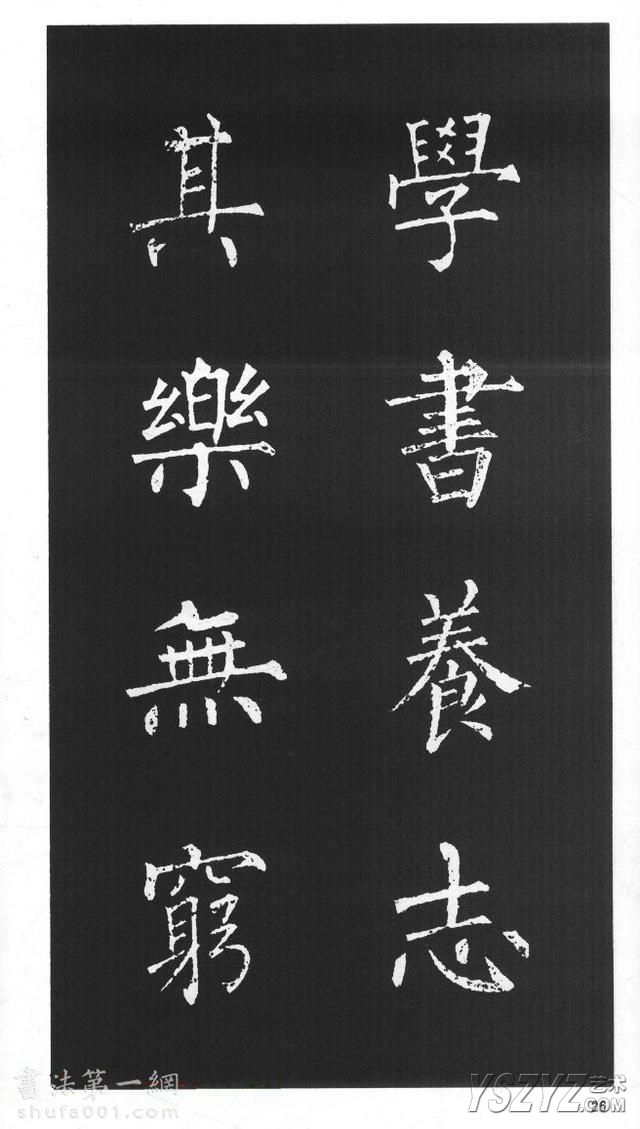 學書養志
其樂無窮
書法第一網
shufa001.com
YSZYZ艺术
.COM
26